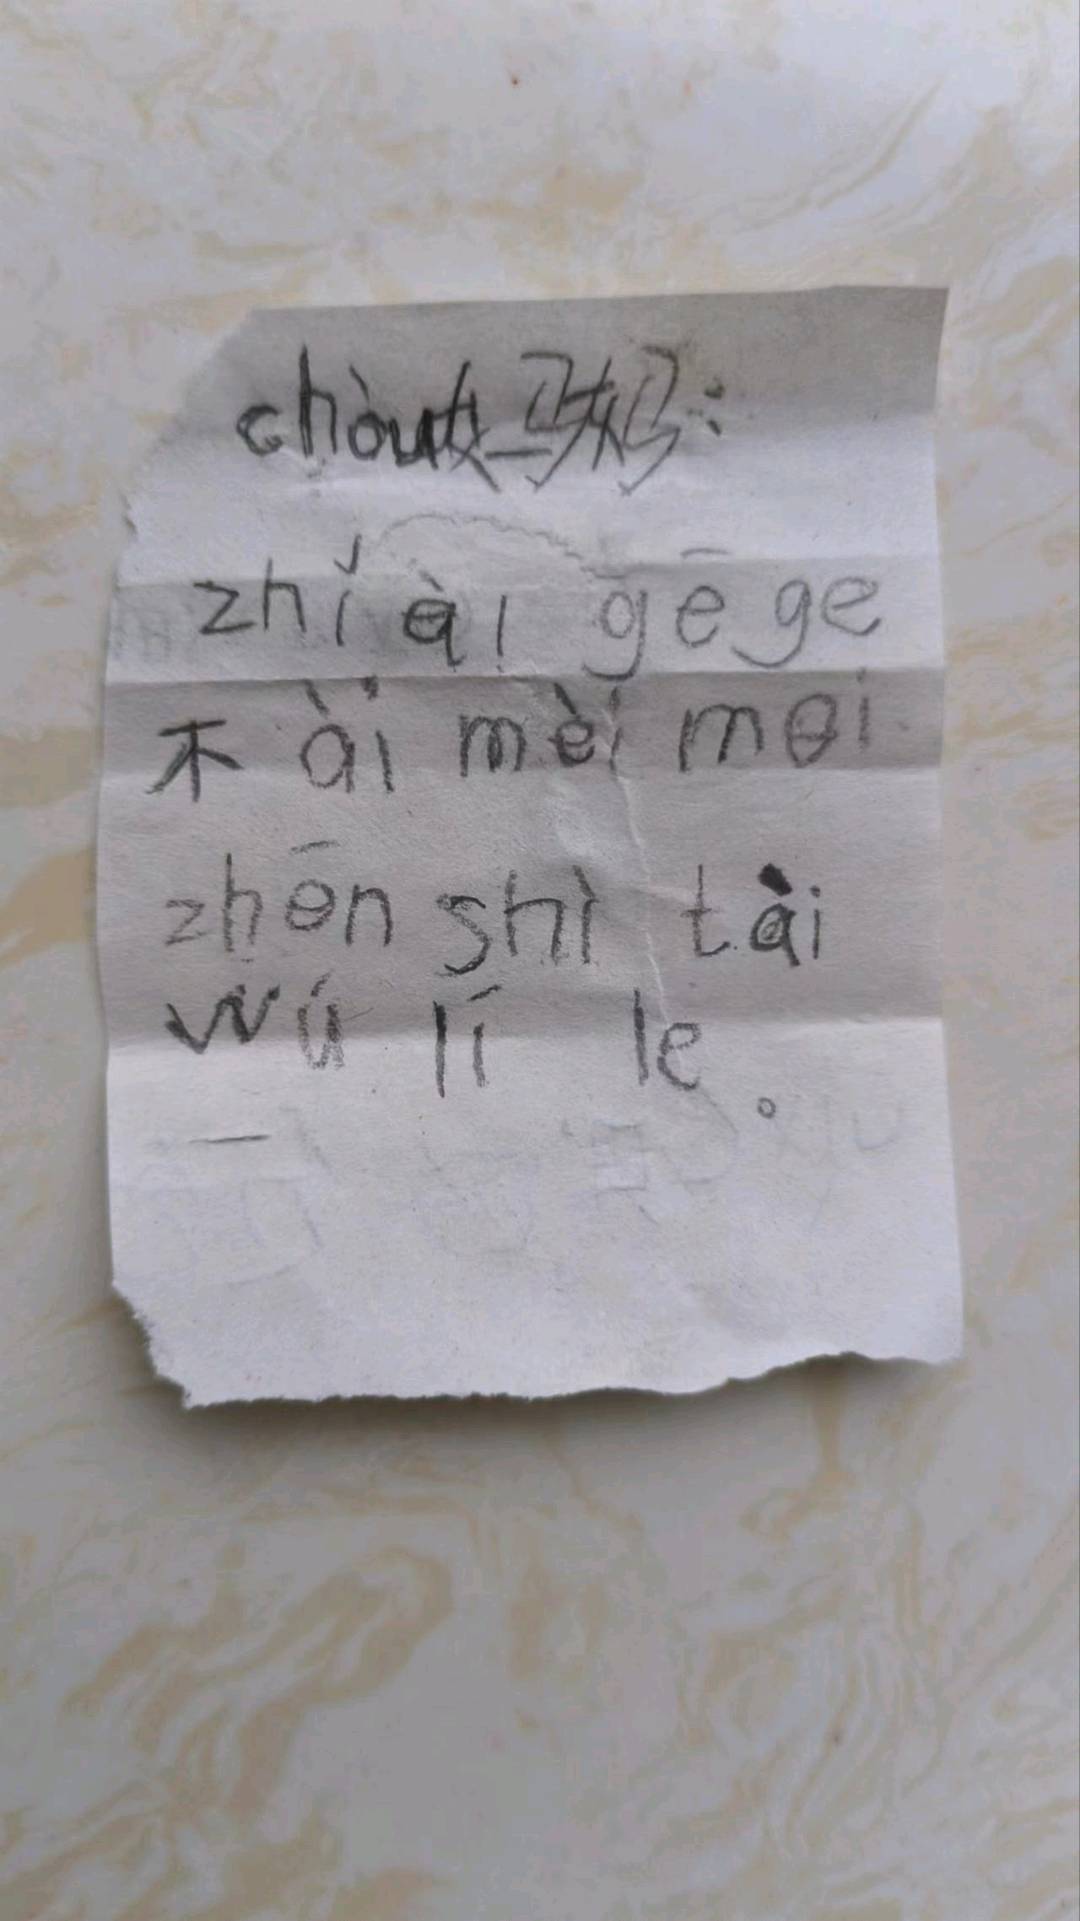 chòu妈妈:
zhǐ ài gē ge
不 ài mèi mei
zhēn shì tài
wú lí le。